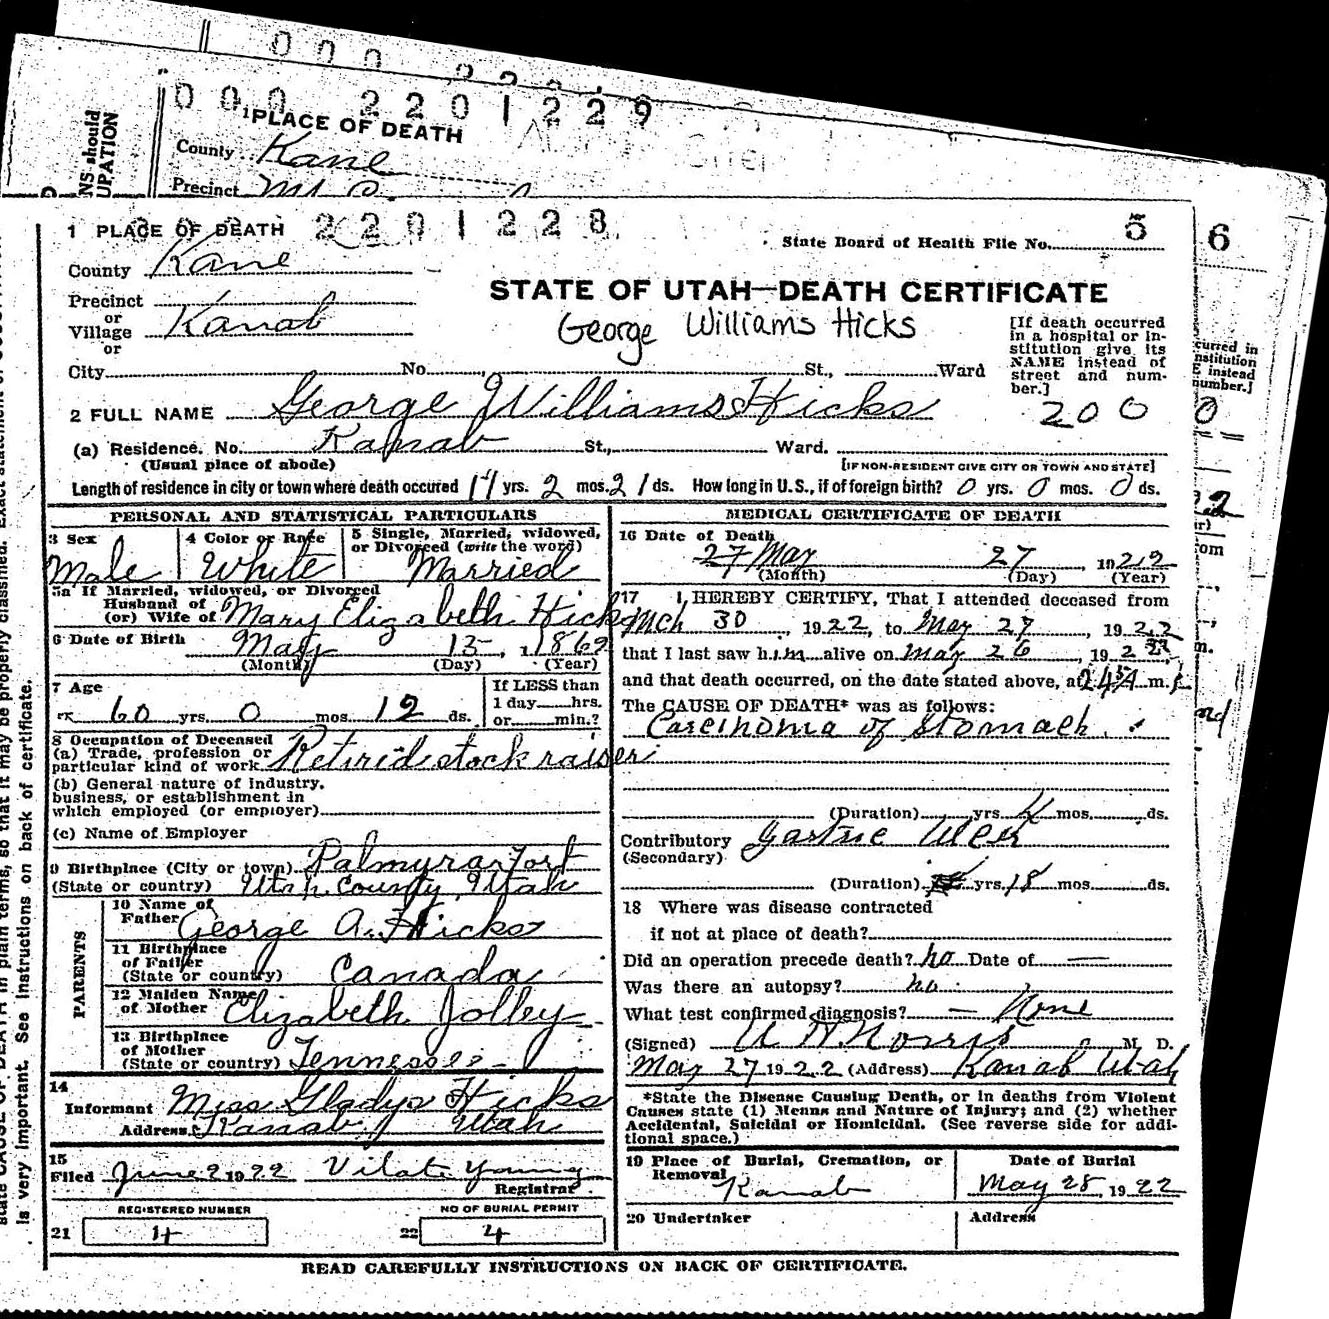 0 0 0 2 2
0 0 0 2 2 0 1 2 2 9
1 PLACE OF DEATH
County Kane
Precinct
NS should
UPATION
0 0 0 2 2 0 1 2 2 8
1 PLACE OF DEATH
State Board of Health File No. 5
6
County Kane
STATE OF UTAH—DEATH CERTIFICATE
George Williams Hicks
Precinct
or
Village Kanab
or
City No. St., Ward
[If death occurred
in a hospital or in-
stitution give its
NAME instead of
street and num-
ber.]
curred in
nstitution
E instead
number.]
200
0
2 FULL NAME George Williams Hicks
(a) Residence. No. Kanab St., Ward.
(Usual place of abode) [IF NON-RESIDENT GIVE CITY OR TOWN AND STATE]
Length of residence in city or town where death occured 14 yrs. 2 mos. 21 ds. How long in U.S., if of foreign birth? 0 yrs. 0 mos. 0 ds.
PERSONAL AND STATISTICAL PARTICULARS
3 Sex 4 Color or Race 5 Single, Married, widowed,
or Divorced (write the word)
Male White Married
5a If Married, widowed, or Divorced
Husband of
(or) Wife of Mary Elizabeth Hicks
6 Date of Birth May 15, 1862
(Month) (Day) (Year)
7 Age If LESS than
1 day hrs.
60 yrs. 0 mos. 12 ds. or min.?
8 Occupation of Deceased
(a) Trade, profession or
particular kind of work Retired stock raiser
(b) General nature of industry.
business, or establishment in
which employed (or employer)
(c) Name of Employer
9 Birthplace (City or town) Palmyra Fort
(State or country) Utah County, Utah
PARENTS
10 Name of
Father George A. Hicks
11 Birthplace
of Father
(State or country) Canada
12 Maiden Name
of Mother Elizabeth Jolley
13 Birthplace
of Mother
(State or country) Tennessee
14
Informant Miss Gladys Hicks
Address Kanab Utah
15
Filed June 2 1922 Vilate Young
Registrar
REGISTERED NUMBER NO OF BURIAL PERMIT
21 4 22 4
MEDICAL CERTIFICATE OF DEATH
16 Date of Death
27 May 27 1922
(Month) (Day) (Year)
17 I, HEREBY CERTIFY, That I attended deceased from
Mch 30, 1922, to May 27, 1922
that I last saw him alive on May 26, 192
and that death occurred, on the date stated above, at m.
The CAUSE OF DEATH* was as follows:
Carcinoma of Stomach
(Duration) yrs. 4 mos. ds.
Contributory Gastric Ulcer
(Secondary)
(Duration) yrs. 18 mos. ds.
18 Where was disease contracted
if not at place of death?
Did an operation precede death? no Date of —
Was there an autopsy? no
What test confirmed diagnosis? — None
(Signed) Norris M. D.
May 27 1922 (Address) Kanab Utah
*State the Disease Causing Death, or in deaths from Violent
Causes state (1) Menns and Nature of Injury; and (2) whether
Accidental, Suicidal or Homicidal. (See reverse side for addi-
tional space.)
19 Place of Burial, Cremation, or
Removal Kanab
Date of Burial
May 28, 1922
20 Undertaker Address
READ CAREFULLY INSTRUCTIONS ON BACK OF CERTIFICATE.
in plain terms, so that it may be properly classified. Exact statement of
is very important. See instructions on back of certificate.